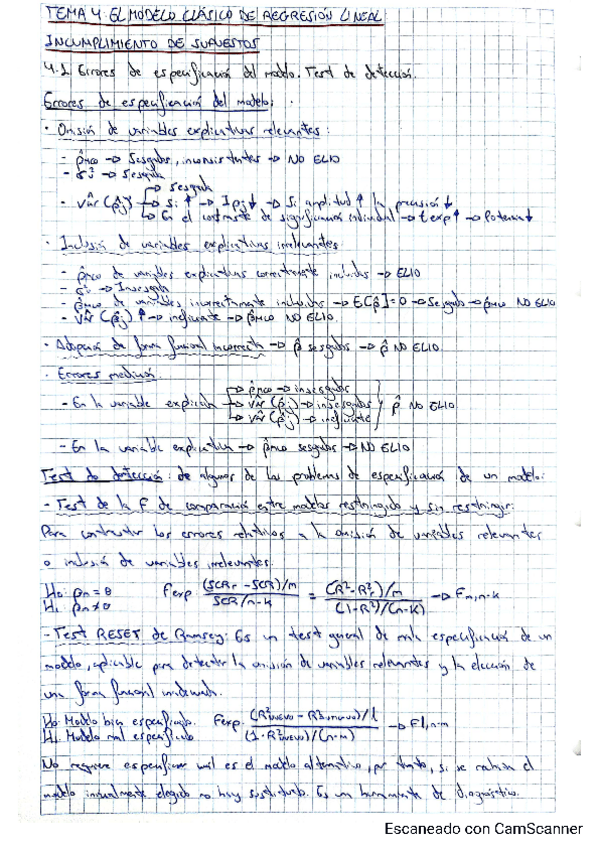 TEMA 4: EL MODELO CLÁSICO DE REGRESIÓN LINEAL
INCUMPLIMIENTO DE SUPUESTOS
4.1 Errores de especificación del modelo. Test de detección.
Errores de especificación del modelo:
· Omisión de variables explicativas relevantes:
- β̂MCO → Sesgados, inconsistentes → NO ELIO
- σ̂² → Sesgada
→ Sesgada
- Var(β̂j) → Si ↑ → IPβj ↓ → Si amplitud ↑ la precisión ↓
→ En el contraste de significación individual → t exp ↑ → Potencia ↓
· Inclusión de variables explicativas irrelevantes
- β̂MCO de variables explicativas correctamente incluidas → ELIO
- σ̂² → Insesgada
- β̂MCO de variables incorrectamente incluidas → E[β̂] = 0 → Sesgado → β̂MCO NO ELIO
- Vâr(β̂j) ↑ → ineficiente → β̂MCO NO ELIO.
· Adopción de forma funcional incorrecta → β̂ sesgados → β̂ NO ELIO.
· Errores medición.
→ β̂MCO → insesgados
- En la variable explicada → Vâr(β̂j) → insesgados } β̂ NO ELIO.
→ Vâr(β̂j) → ineficiente
- En la variable explicativa → β̂MCO sesgados → NO ELIO
Test de detección: de algunos de los problemas de especificación de un modelo:
- Test de la F de comparación entre modelos restringido y sin restringir:
Para contrastar los errores relativos a la omisión de variables relevantes
o inclusión de variables irrelevantes.
H0: βn = 0 Fexp (SCRr - SCR)/m / SCR/n-k = (R² - R²r)/m / (1-R²)/(n-k) → Fm,n-k
H1: βn ≠ 0
- Test RESET de Ramsey: Es un test general de mala especificación de un
modelo, aplicable para detectar la omisión de variables relevantes y la elección de
una forma funcional inadecuada.
H0: Modelo bien especificado. Fexp. (R²NUEVO - R²)/l / (1-R²NUEVO)/(n-m) → Fl,n-m
H1: Modelo mal especificado
No requiere especificar cuál es el modelo alternativo, por tanto, si se rechaza el
modelo inicialmente elegido no hay sustituto. Es una herramienta de diagnóstico.
Escaneado con CamScanner